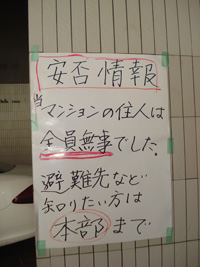 安否情報
当マンションの住人は
全員無事でした.
避難先など
知りたい方は
本部まで